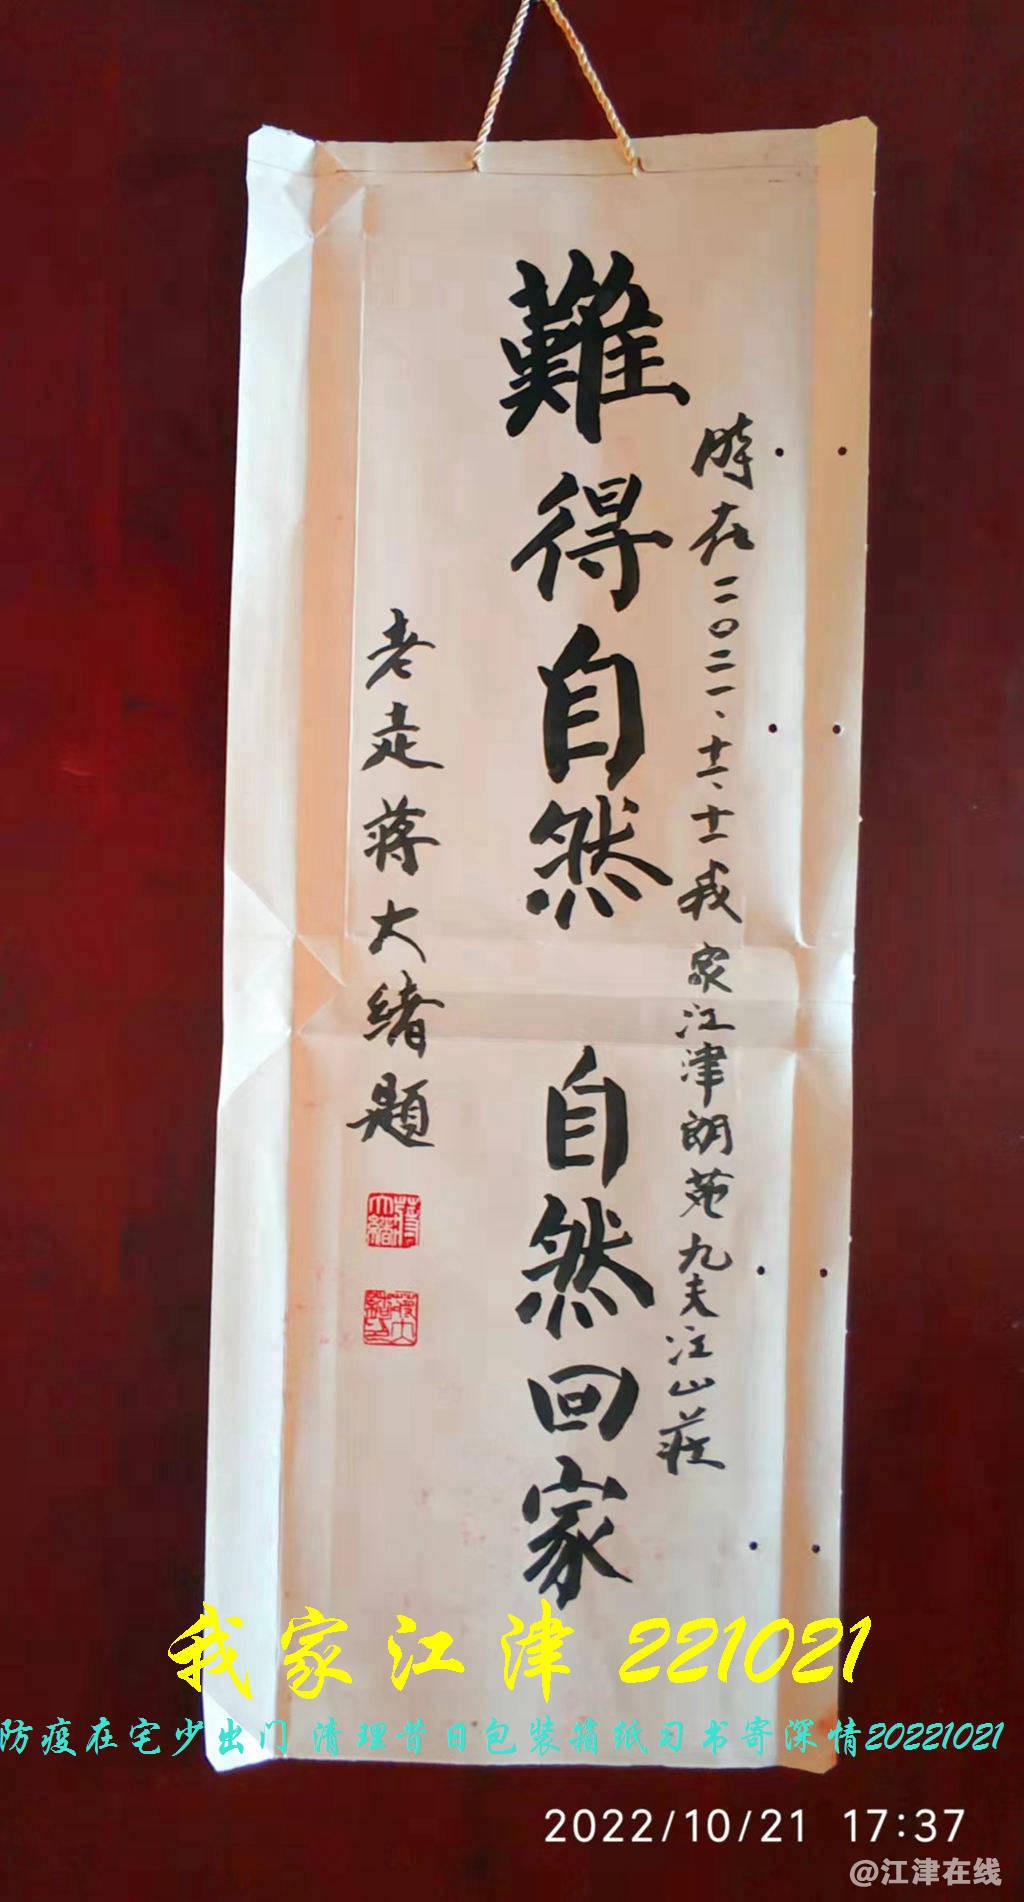 時在二〇二一、十二、十二我家江津朗苑九夫江山莊
難得自然 自然回家
老走蒋大绪題
我家江津 221021
防疫在宅少出门 清理昔日包装箱纸习书寄深情20221021
2022/10/21 17:37
@江津在线